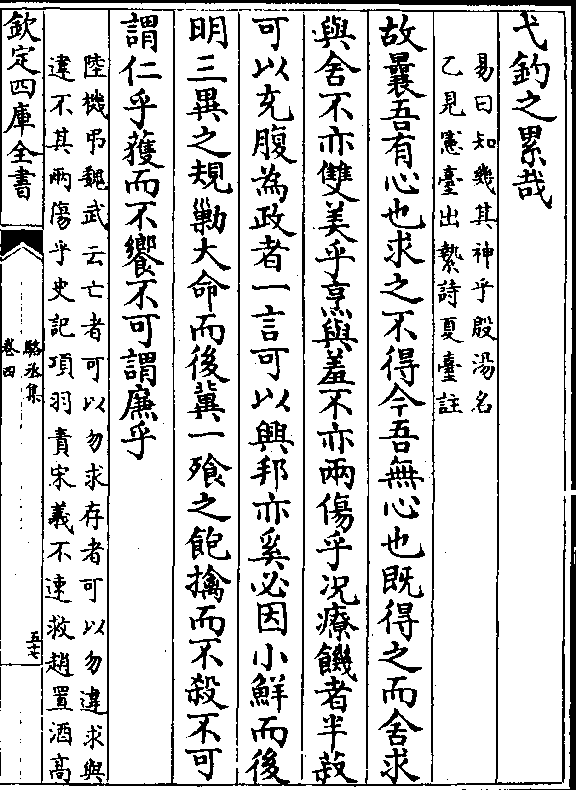 弋釣之累哉
易曰知幾其神乎殷湯名
乙見憲臺出縶詩夏臺註
故曩吾有心也求之不得今吾無心也既得之而舍求
與舍不亦雙美乎烹與羞不亦兩傷乎况療饑者半菽
可以充腹為政者一言可以興邦亦奚必因小鮮而後
明三異之規勦大命而後冀一飱之飽擒而不殺不可
謂仁乎獲而不饗不可謂廉乎
陸機弔魏武云亡者可以勿求存者可以勿違求與
違不其兩傷乎史記項羽責宋義不速救趙置酒高
欽定四庫全書
駱丞集
卷四
五十七